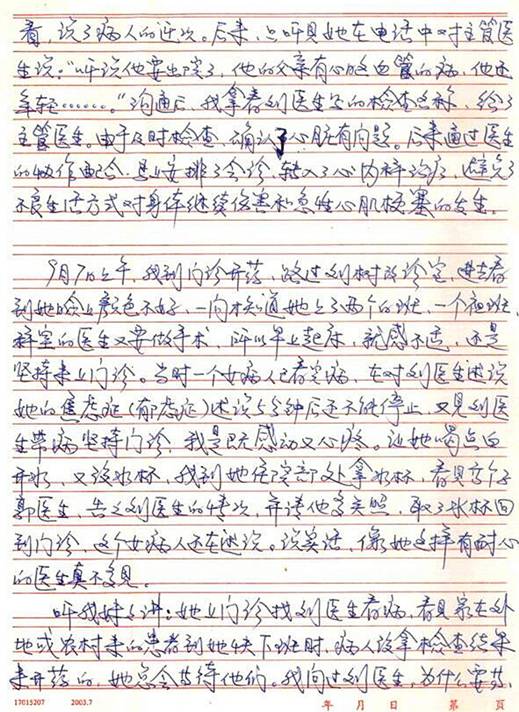 看,说了病人的近况。后来,只听见她在电话中对主管医
生说:"听说他要出院了,他的父亲有心脑血管的病,他还
年轻……。"沟通后,我拿着刘医生写的检查名称,给了
主管医生。由于及时检查,确认了心脏有问题。后来通过医生
的协作配合,马上安排了会诊,转入了心内科治疗,避免了
不良生活方式对身体继续伤害和急性心肌梗塞的发生。
9月7日上午,我到门诊开药,路过刘树改诊室,进去看
到她脸上颜色不好,一问才知道她上了两个白班,一个夜班,
科室的医生又要做手术,所以早上起床,就感不适,还是
坚持来上门诊。当时一个女病人已看完病,在对刘医生述说
她的焦虑症(郁虑症)述说5分钟后还不能停止,又见刘医
生带病坚持门诊,我是既感动又心疼。让她喝点白
开水,又没水杯,我到她住院部处拿水杯,看见高个子
郭医生,告之刘医生的情况,并请他多关照,取了水杯回
到门诊,这个女病人还在述说。说实话,像她这样有耐心
的医生真不多见。
听我婶子讲:她上门诊找刘医生看病,看见家在外
地或农村来的患者到她快下班时,病人没拿检查结果
来开药的,她总会等待他们。我问过刘医生,为什么要等,
17015207 2003.7 年 月 日 第 页